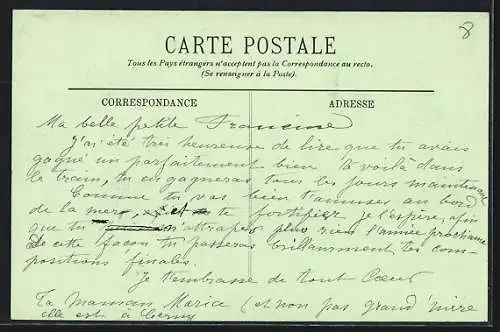 8
CARTE POSTALE
Tous les Pays étrangers n'acceptent pas la Correspondance au recto.
(Se renseigner à la Poste).
CORRESPONDANCE
ADRESSE
Ma belle petite Francine
J'ai été très heureuse de lire que tu avais
gagné un parfaitement bien te voilà dans
le train, tu en gagneras tous les jours maintenant
Comme tu vas bien t'amuser au bord
de la mer, et te fortifier je l'espère, afin
que tu n'attrapes plus rien l'année prochaine
De cette façon tu passeras brillamment tes com-
positions finales.
Je t'embrasse de tout Cœur
Ta Maman Marice (et non pas grand'mère
elle est à